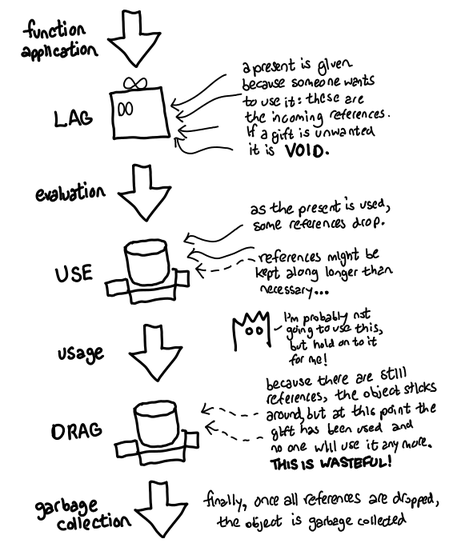 function
application
LAG
a present is given
because someone wants
to use it: these are
the incoming references.
If a gift is unwanted
it is VOID.
evaluation
as the present is used,
some references drop.
USE
references might be
kept along longer than
necessary...
I'm probably not
going to use this,
but hold on to it
for me!
usage
because there are still
references, the object sticks
around, but at this point the
gift has been used and
no one will use it any more.
THIS IS WASTEFUL!
DRAG
garbage
collection
finally, once all references are dropped,
the object is garbage collected